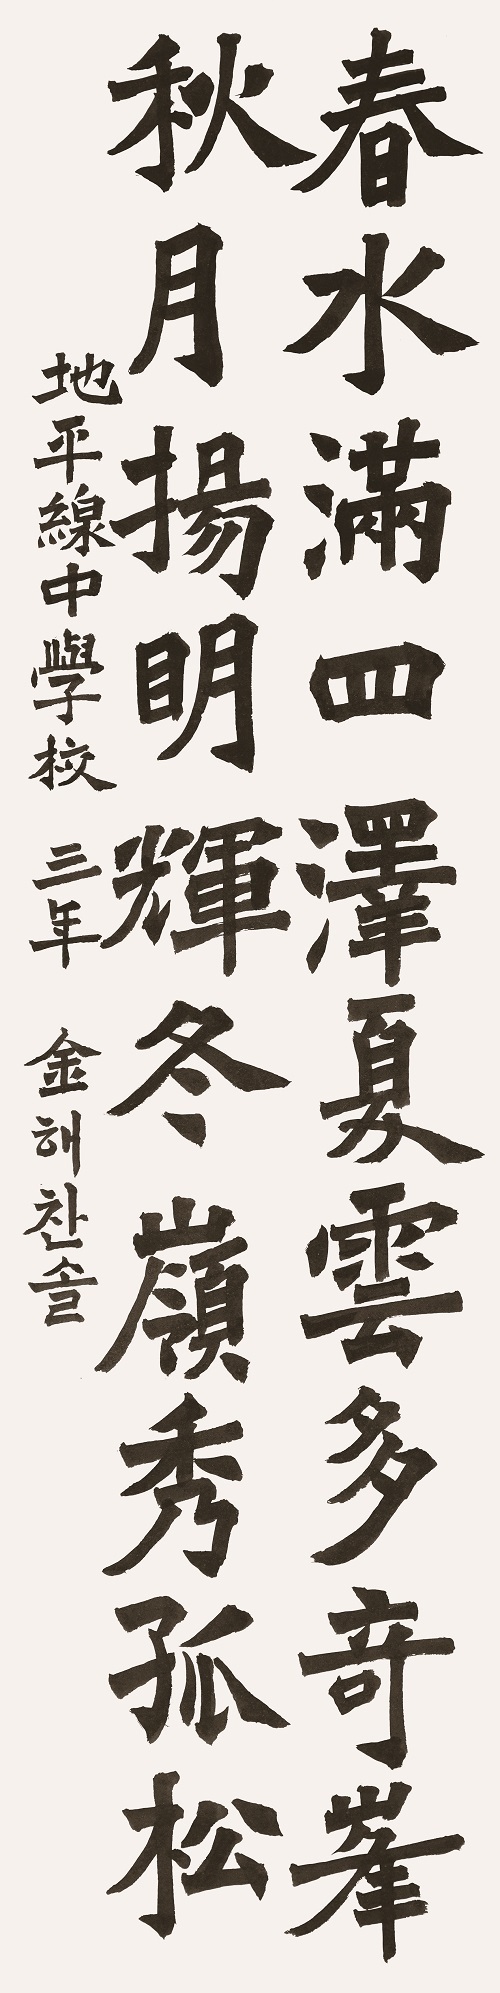 春水滿四澤夏雲多奇峯
秋月揚明輝冬嶺秀孤松
地平線中學校 三年 金해찬솔